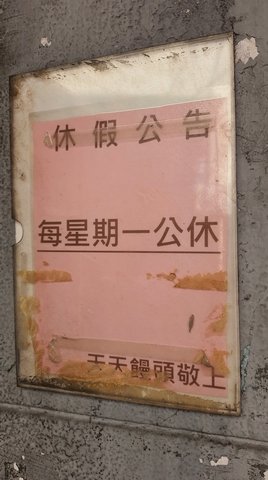 休假公告
每星期一公休
天天饅頭敬上